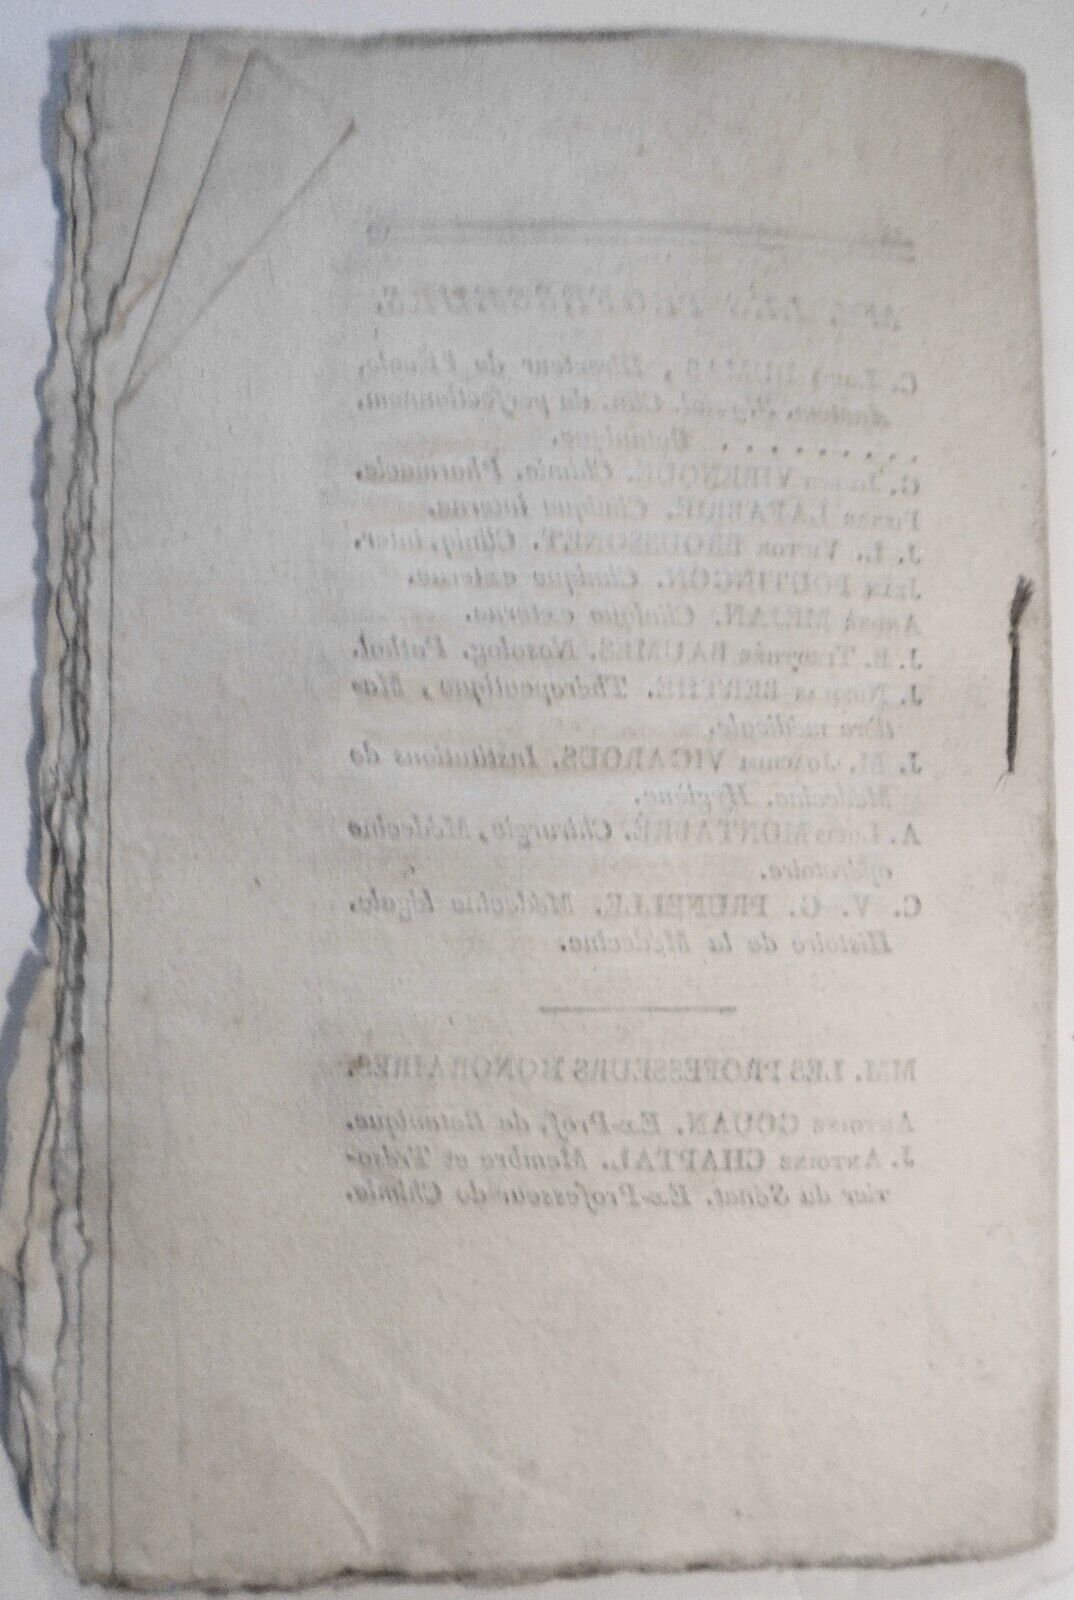 MM. LES PROFESSEURS.
C. Louis DUMAS, Directeur de l'École,
Anatom. Physiol. Clin. de perfectionnem.
. . . . . . . . . Botanique.
G. Joseph VIRENQUE. Chimie. Pharmacie.
Pierre LAFABRIE. Clinique interne.
J. L. Victor BROUSSONET. Cliniq. inter.
Jean POUTINGON. Clinique externe.
André MÉJAN. Clinique externe.
J. B. Timothée BAUMES. Nosolog. Pathol.
J. Nicolas BERTHE. Thérapeutique, Mat-
ière médicale.
J. M. Joachim VIGAROUS. Institutions de
Médecine. Hygiène.
A. Louis MONTABRÉ. Chirurgie, Médecine
opératoire.
C. V. G. PRUNELLE. Médecine légale,
Histoire de la Médecine.
MM. LES PROFESSEURS HONORAIRES.
Antoine GOUAN. Ex-Prof. de Botanique.
J. Antoine CHAPTAL. Membre et Tréso-
rier du Sénat. Ex-Professeur de Chimie.